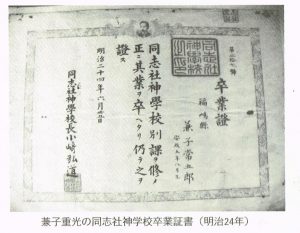 卒業證
福島縣
兼子常五郎
安政五年八月生
同志社神學校別課ヲ修メ
正ニ其業ヲ卒ヘタリ仍テ之ヲ
證ス
明治二十四年六月
同志社神學校長小崎弘道
兼子重光の同志社神学校卒業証書（明治24年）